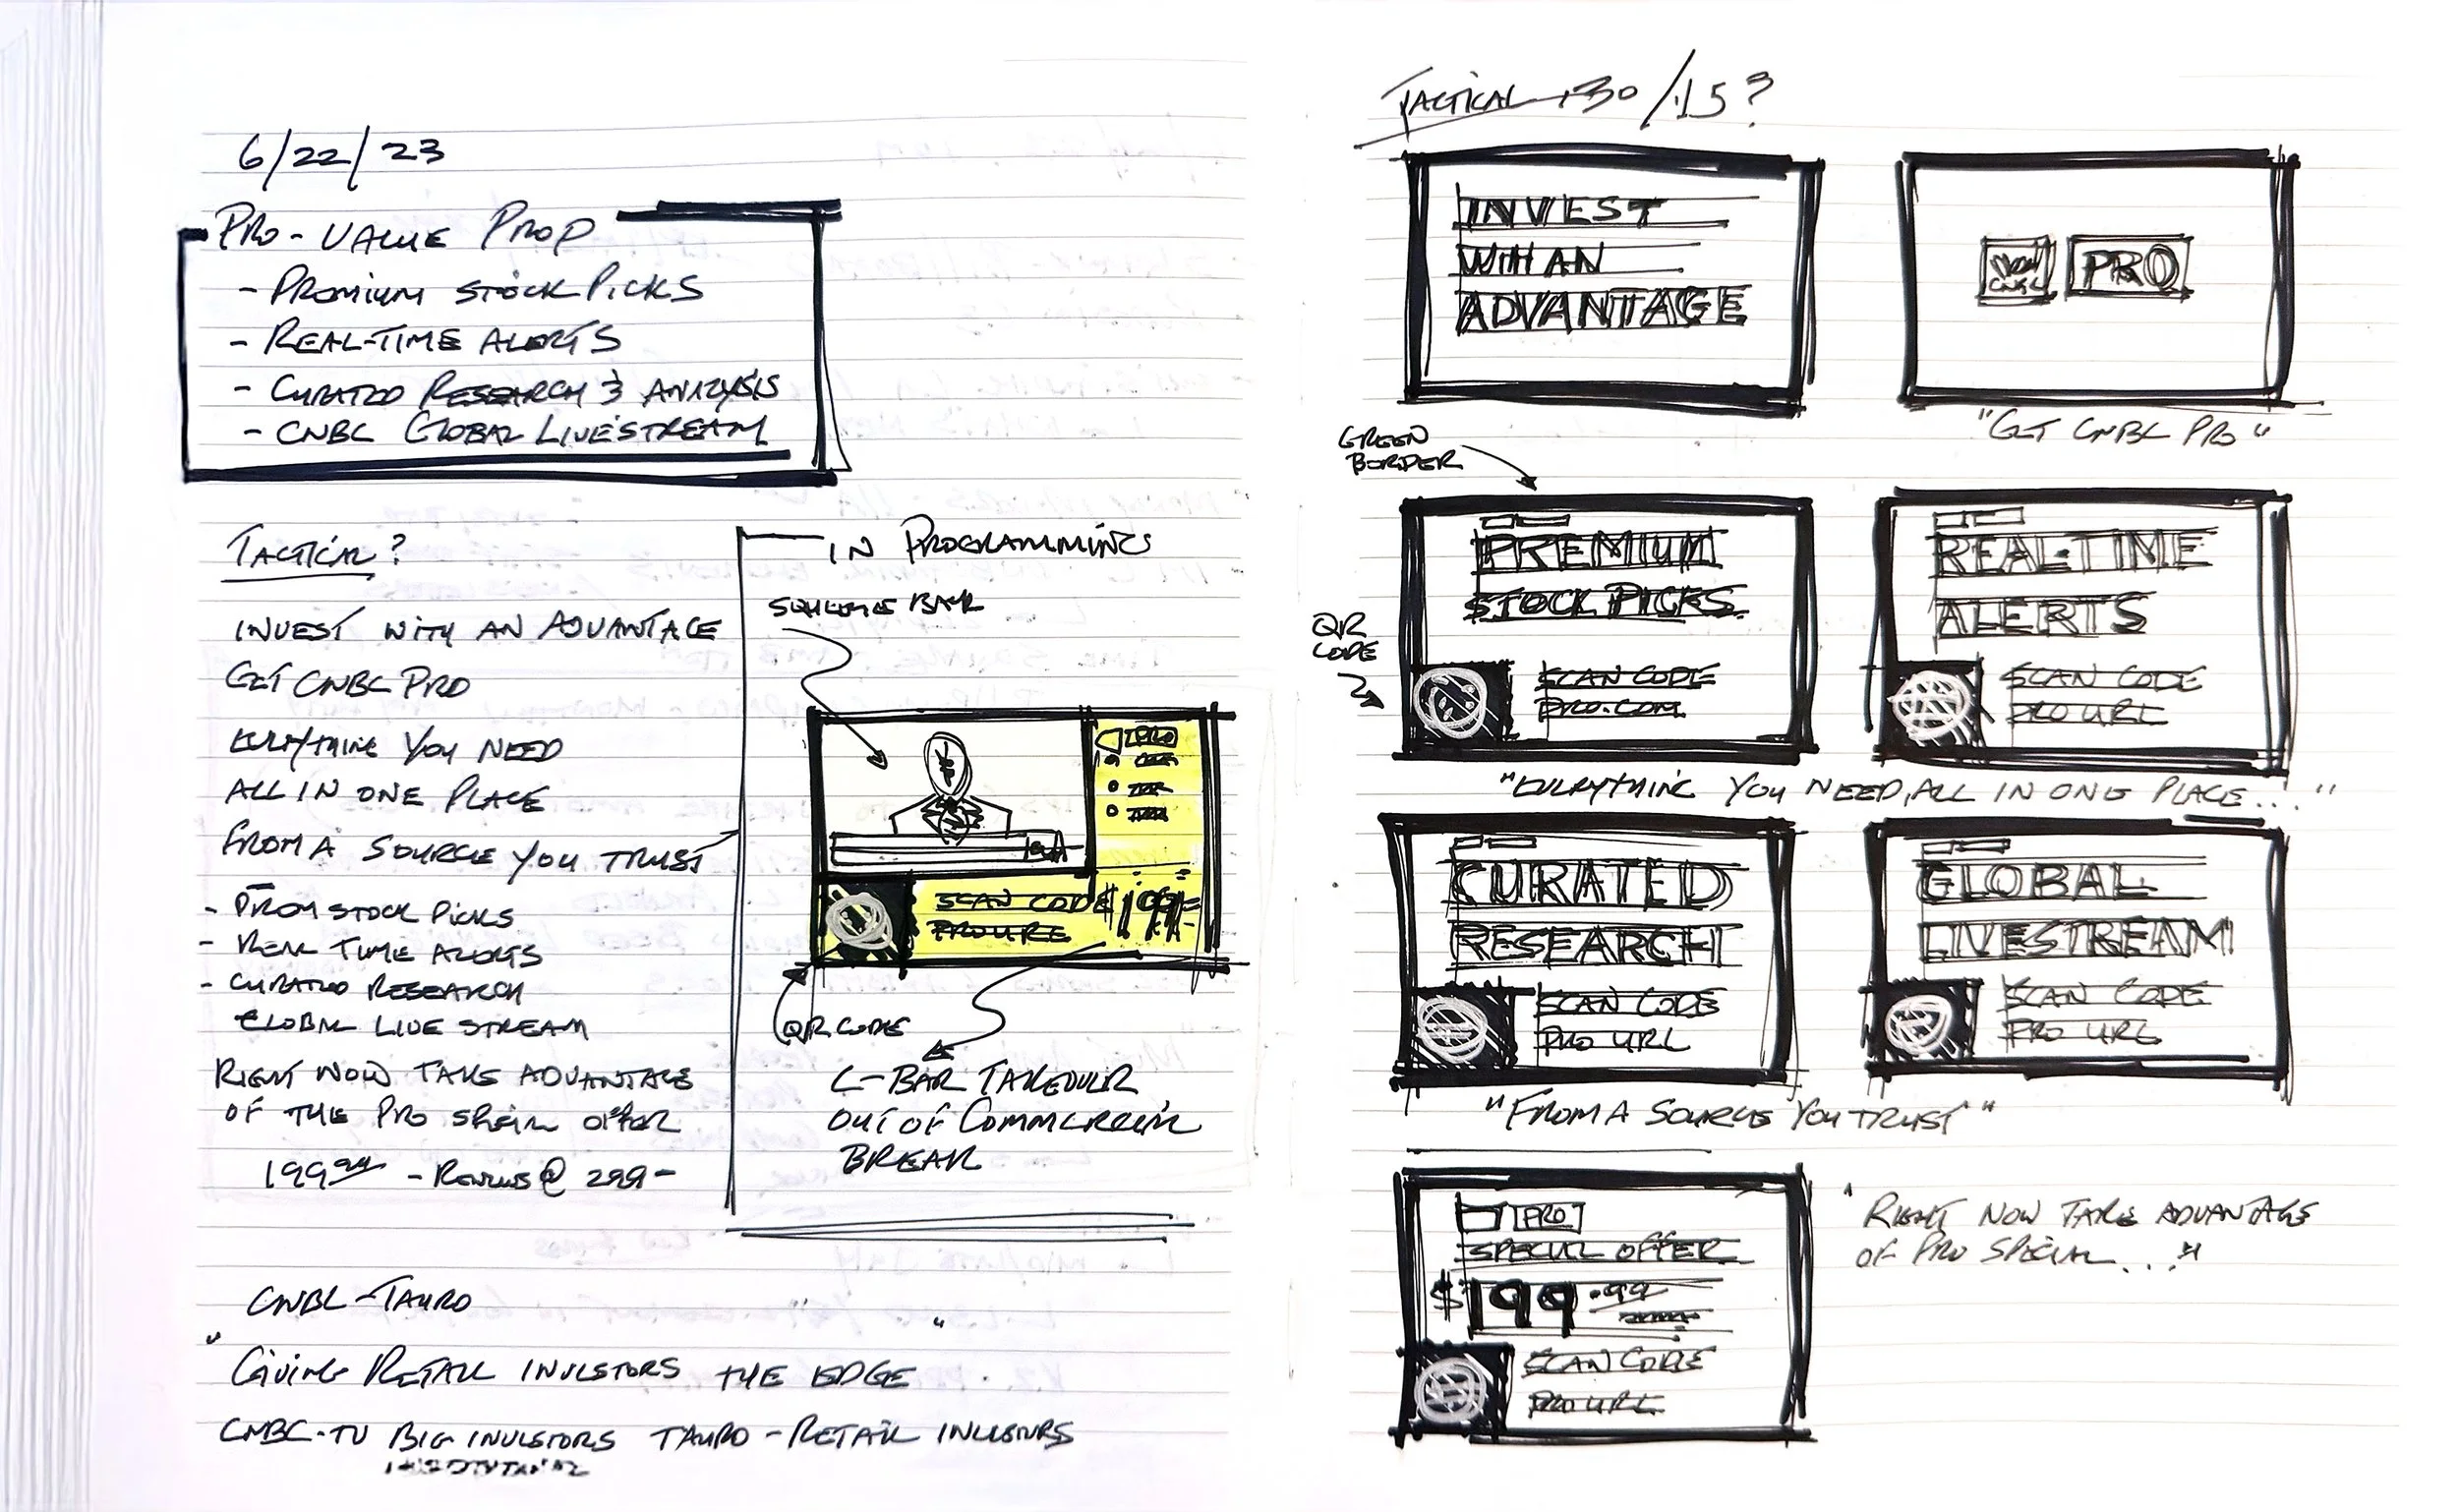 6/22/23
PRO - VALUE PROP
- PREMIUM STOCK PICKS
- REAL-TIME ALERTS
- CURATED RESEARCH & ANALYSIS
- CNBC GLOBAL LIVESTREAM
TACTICAL?
INVEST WITH AN ADVANTAGE
GET CNBC PRO
EVERYTHING YOU NEED
ALL IN ONE PLACE
FROM A SOURCE YOU TRUST
- PREM STOCK PICKS
- REAL TIME ALERTS
- CURATED RESEARCH
GLOBAL LIVE STREAM
RIGHT NOW TAKE ADVANTAGE
OF THE PRO SPECIAL OFFER
199.99 - RENEWS @ 299-
IN PROGRAMMING
SQUEEZE BACK
PRO
SCAN CODE $199
PRO URL
QR CODE
L-BAR TAKEOVER
OUT OF COMMERCIAL
BREAK
CNBC - TAURO
"GIVING RETAIL INVESTORS THE EDGE".
CNBC-TV BIG INVESTORS TAURO - RETAIL INVESTORS
TACTICAL :30/:15?
INVEST
WITH AN
ADVANTAGE
CNBC PRO
"GET CNBC PRO"
GREEN
BORDER
PREMIUM
STOCK PICKS
QR
CODE
SCAN CODE
PRO.COM
REAL-TIME
ALERTS
SCAN CODE
PRO URL
"EVERYTHING YOU NEED, ALL IN ONE PLACE..."
CURATED
RESEARCH
SCAN CODE
PRO URL
GLOBAL
LIVESTREAM
SCAN CODE
PRO URL
"FROM A SOURCE YOU TRUST"
PRO
SPECIAL OFFER
$199.99
SCAN CODE
PRO URL
"RIGHT NOW TAKE ADVANTAGE
OF PRO SPECIAL..."